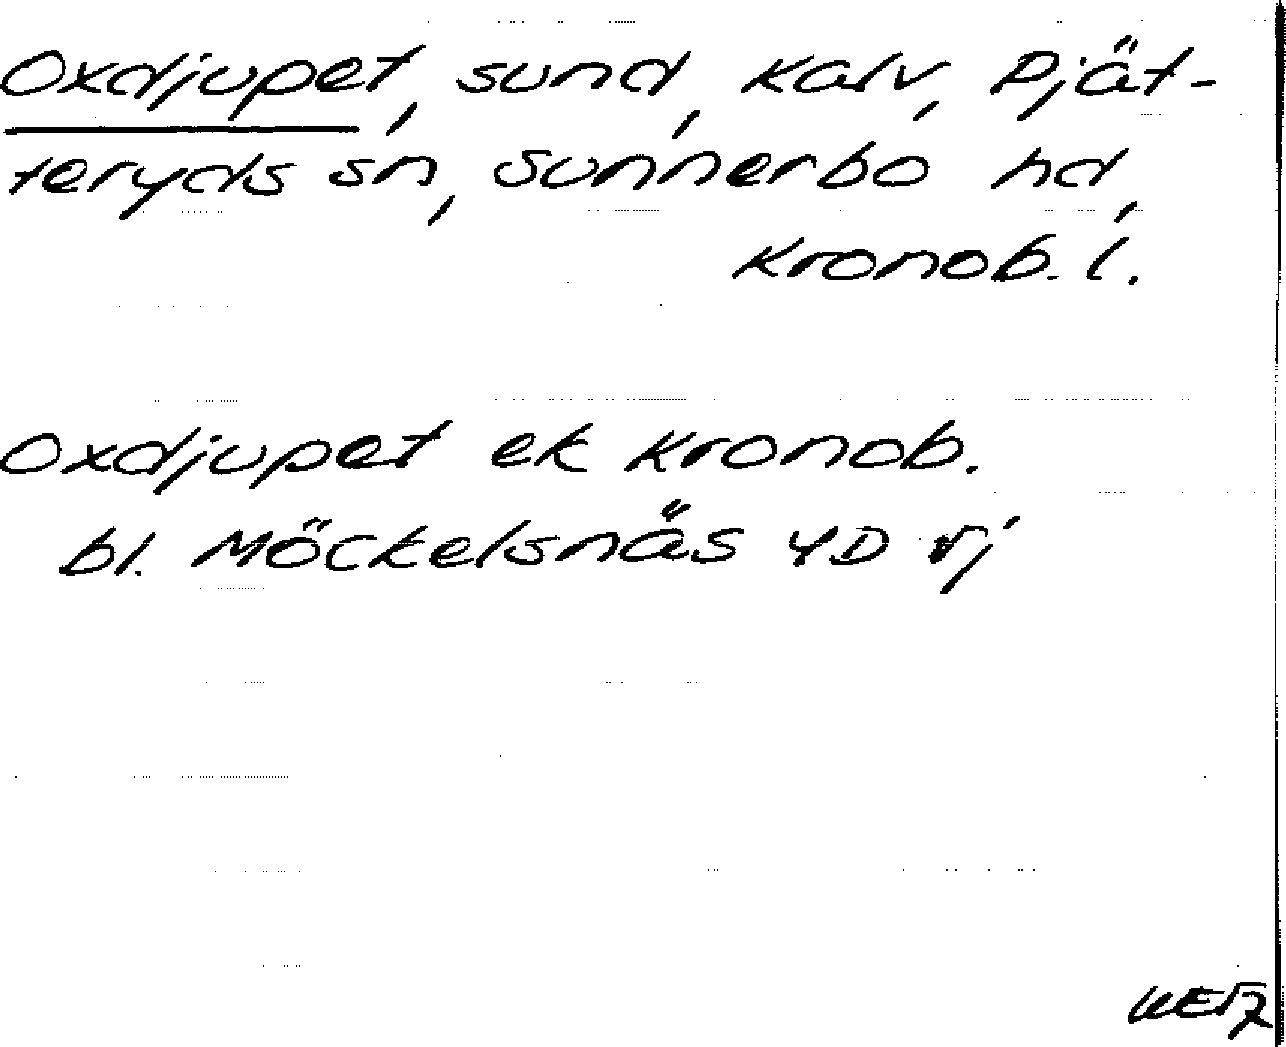 Oxdjupet, sund, Kalv, Pjät-
teryds sn, Sunnerbo hd,
Kronob. l.
Oxdjupet ek Kronob.
bl. Möckelsnäs 4D